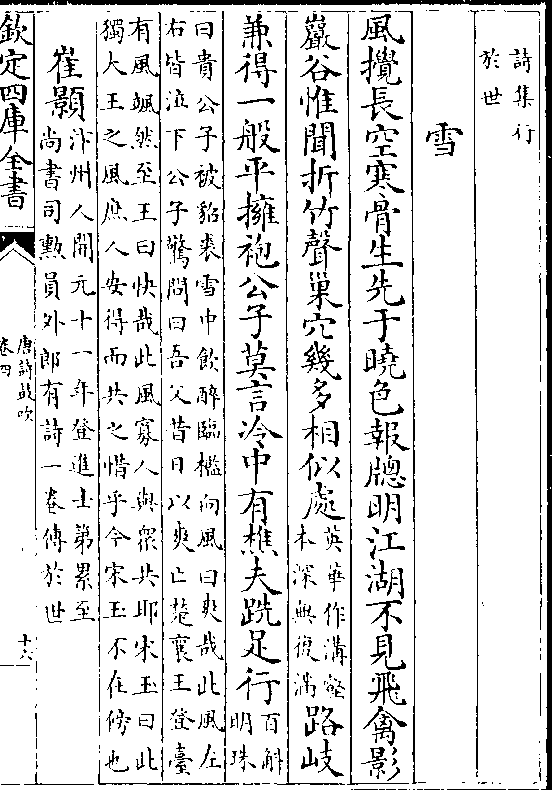 詩集行
於世
雪
風攪長空寒骨生先于曉色報牕明江湖不見飛禽影
巖谷惟聞折竹聲巢穴幾多相似處
英華作溝壑
本深無復滿
路岐
兼得一般平擁袍公子莫言冷中有樵夫跣足行
百斛
明珠
曰貴公子被貂裘雪中飲醉臨檻向風曰爽哉此風左
右皆泣下公子驚問曰吾父昔日以爽亡楚襄王登臺
有風颯然至王曰快哉此風寡人與衆共耶宋玉曰此
獨大王之風庶人安得而共之惜乎今宋玉不在傍也
崔顥
汴州人開元十一年登進士第累至
尚書司勲員外郎有詩一卷傳於世
欽定四庫全書
唐詩鼓吹
卷四
十六